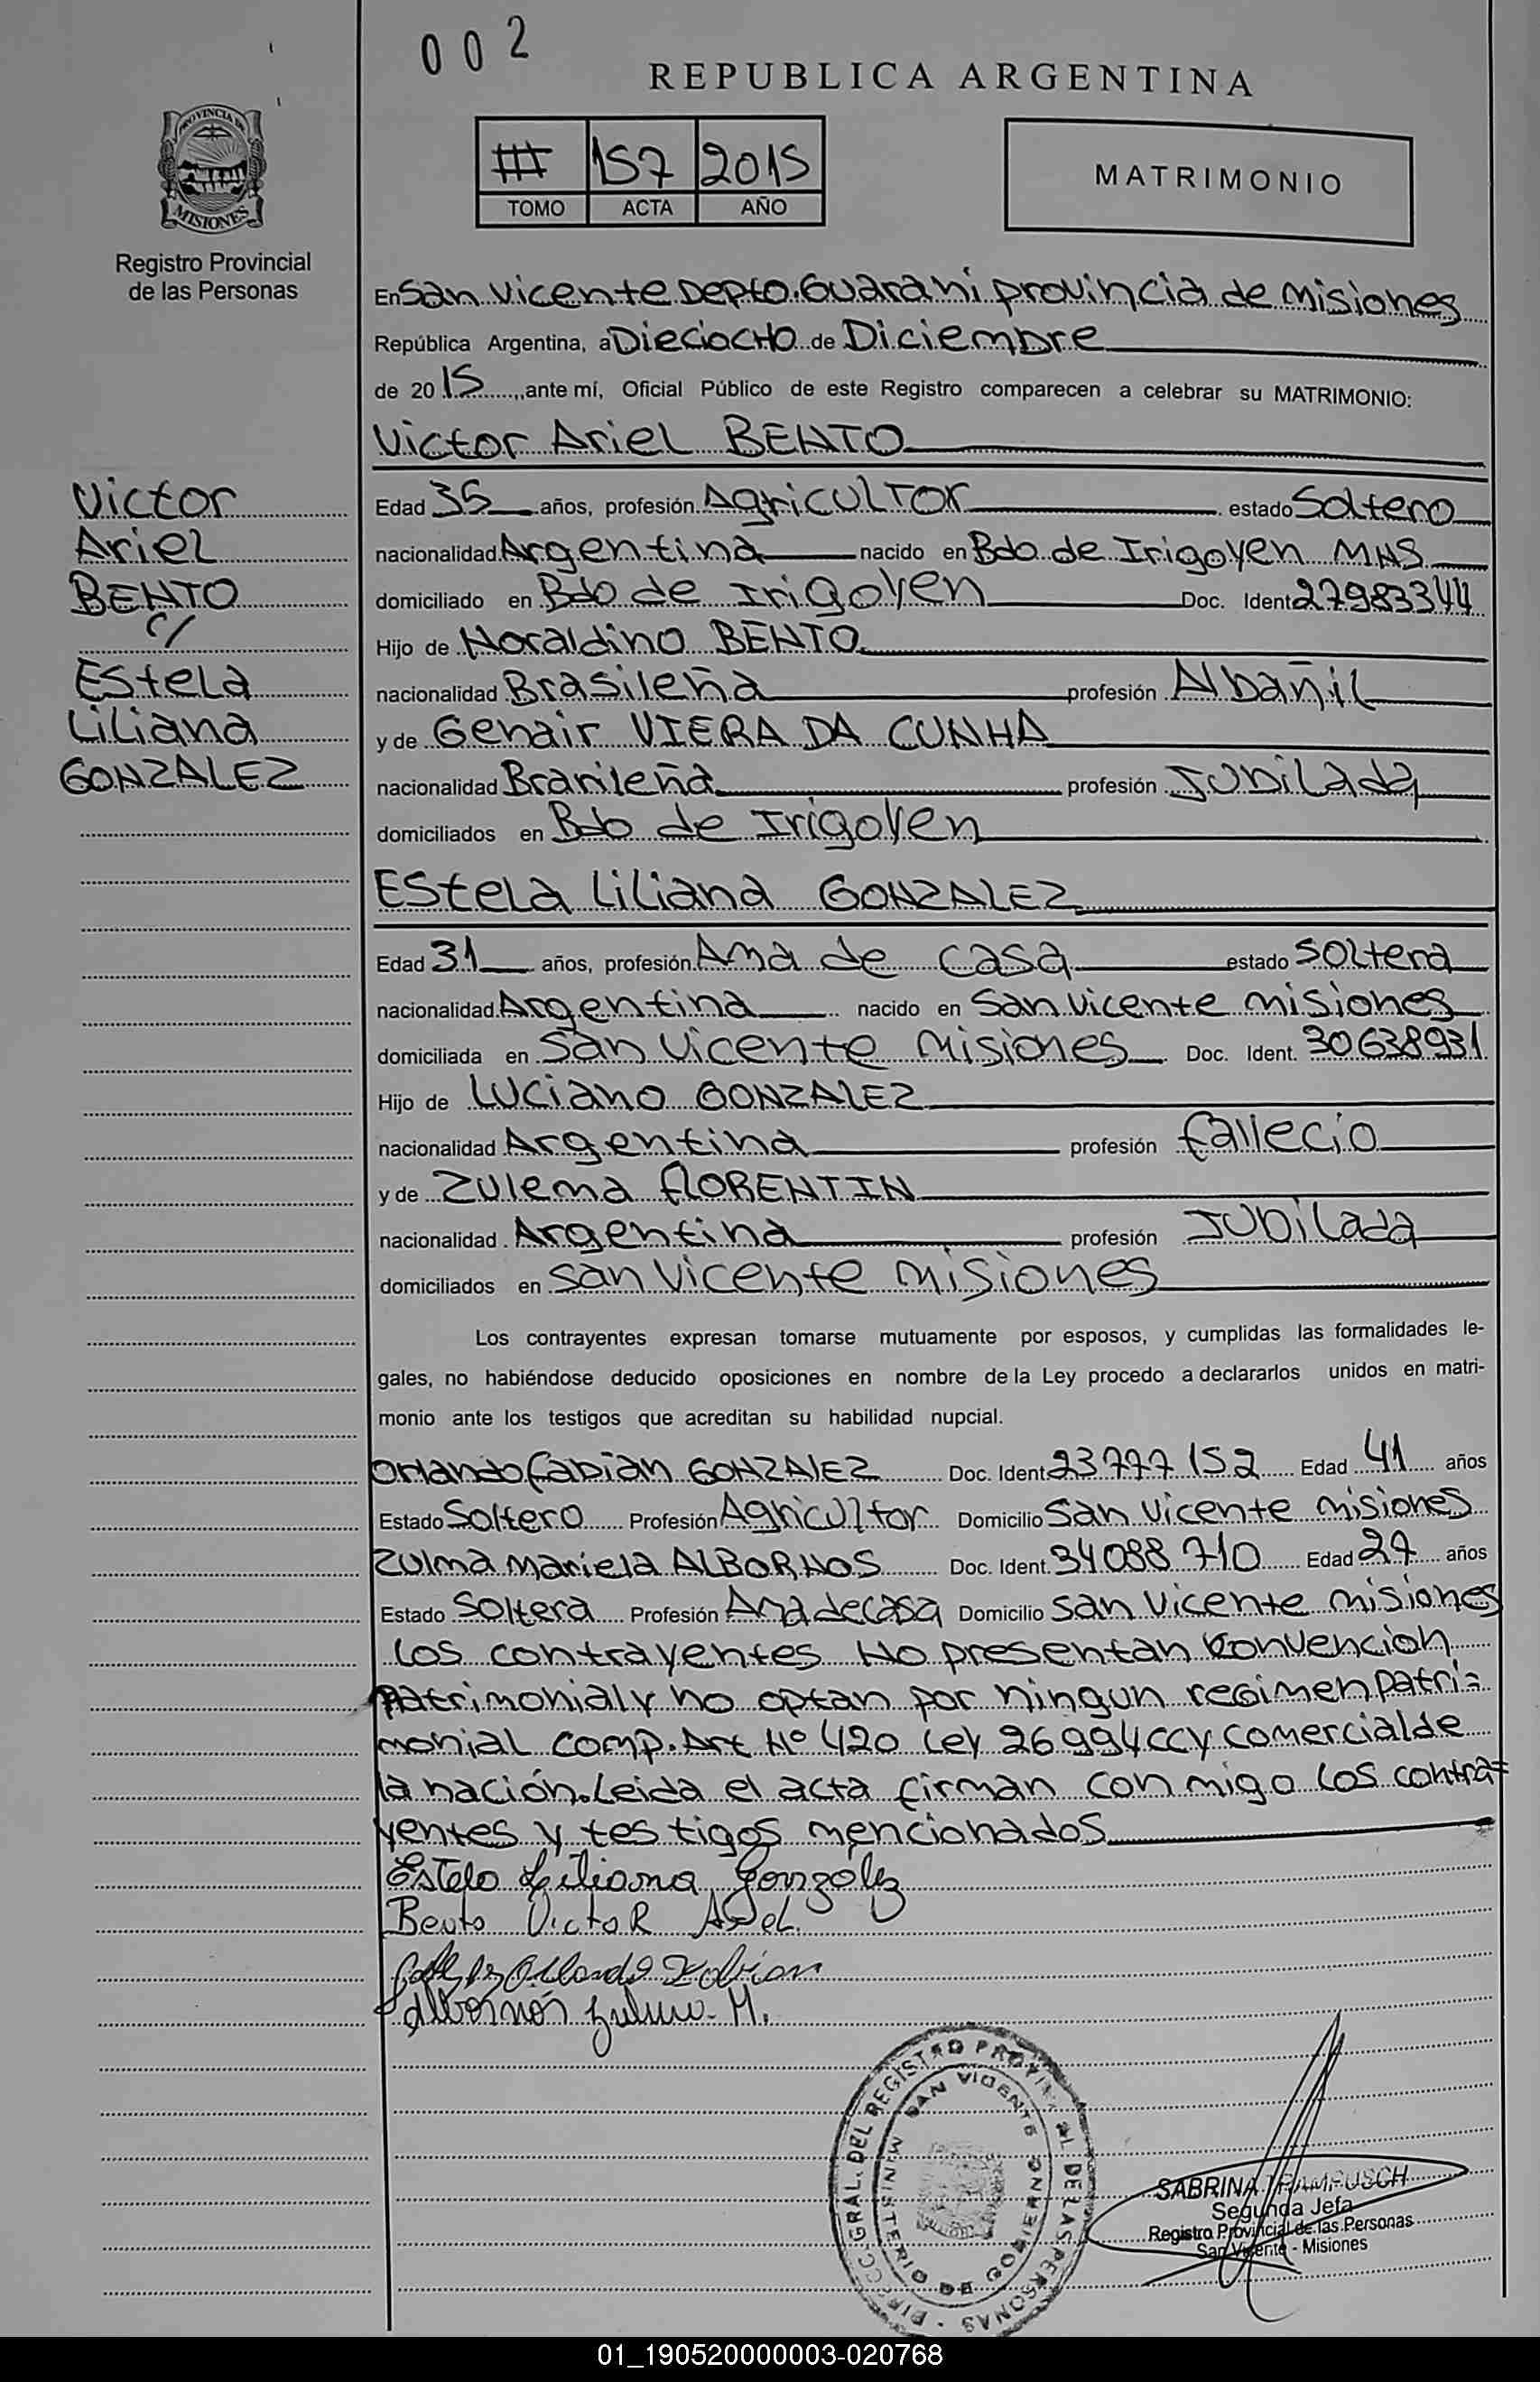 002
REPUBLICA ARGENTINA
PROVINCIA DE
MISIONES
157 2015
TOMO ACTA AÑO
MATRIMONIO
Registro Provincial
de las Personas
En San Vicente Depto. Guarani provincia de Misiones
República Argentina, a Dieciocho de Diciembre
de 2015, ante mí, Oficial Público de este Registro comparecen a celebrar su MATRIMONIO:
Victor Ariel BENTO
Victor
Ariel
BENTO
c/
Estela
Liliana
GONZALEZ
Edad 35 años, profesión Agricultor estado Soltero
nacionalidad Argentina nacido en Bdo de Irigoyen MNS
domiciliado en Bdo de Irigoyen Doc. Ident 27983344
Hijo de Noraldino BENTO
nacionalidad Brasileña profesión Albañil
y de Genair VIERA DA CUNHA
nacionalidad Brasileña profesión Jubilada
domiciliados en Bdo de Irigoyen
Estela Liliana GONZALEZ
Edad 31 años, profesión Ama de casa estado soltera
nacionalidad Argentina nacido en San Vicente misiones
domiciliada en San Vicente misiones Doc. Ident. 30638931
Hijo de Luciano GONZALEZ
nacionalidad Argentina profesión fallecio
y de Zulema flORENTIN
nacionalidad Argentina profesión Jubilada
domiciliados en San Vicente misiones
Los contrayentes expresan tomarse mutuamente por esposos, y cumplidas las formalidades le-
gales, no habiéndose deducido oposiciones en nombre de la Ley procedo a declararlos unidos en matri-
monio ante los testigos que acreditan su habilidad nupcial.
Orlando fabian GONZALEZ Doc. Ident 23777152 Edad 41 años
Estado Soltero Profesión Agricultor Domicilio San Vicente misiones
Zulma Mariela ALBORNOS Doc. Ident. 34088710 Edad 27 años
Estado Soltera Profesión Ama de casa Domicilio San Vicente misiones
los contrayentes No presentan Convencion
Patrimonial y no optan por ningun regimen patri=
monial comp. Art Nº 420 Ley 26994 CC y comercial de
la nación. Leida el acta firman con migo los contra=
yentes y testigos mencionados
Estela Liliana Gonzalez
Bento Victor Ariel
Orlando Fabian
Albornós Zulma M.
DIRECC. GRAL. DEL REGISTRO PROVINCIAL DE LAS PERSONAS
SAN VICENTE
MINISTERIO DE GOBIERNO
SABRINA
Segunda Jefa
Registro Provincial de las Personas
San Vicente - Misiones
01_190520000003-020768